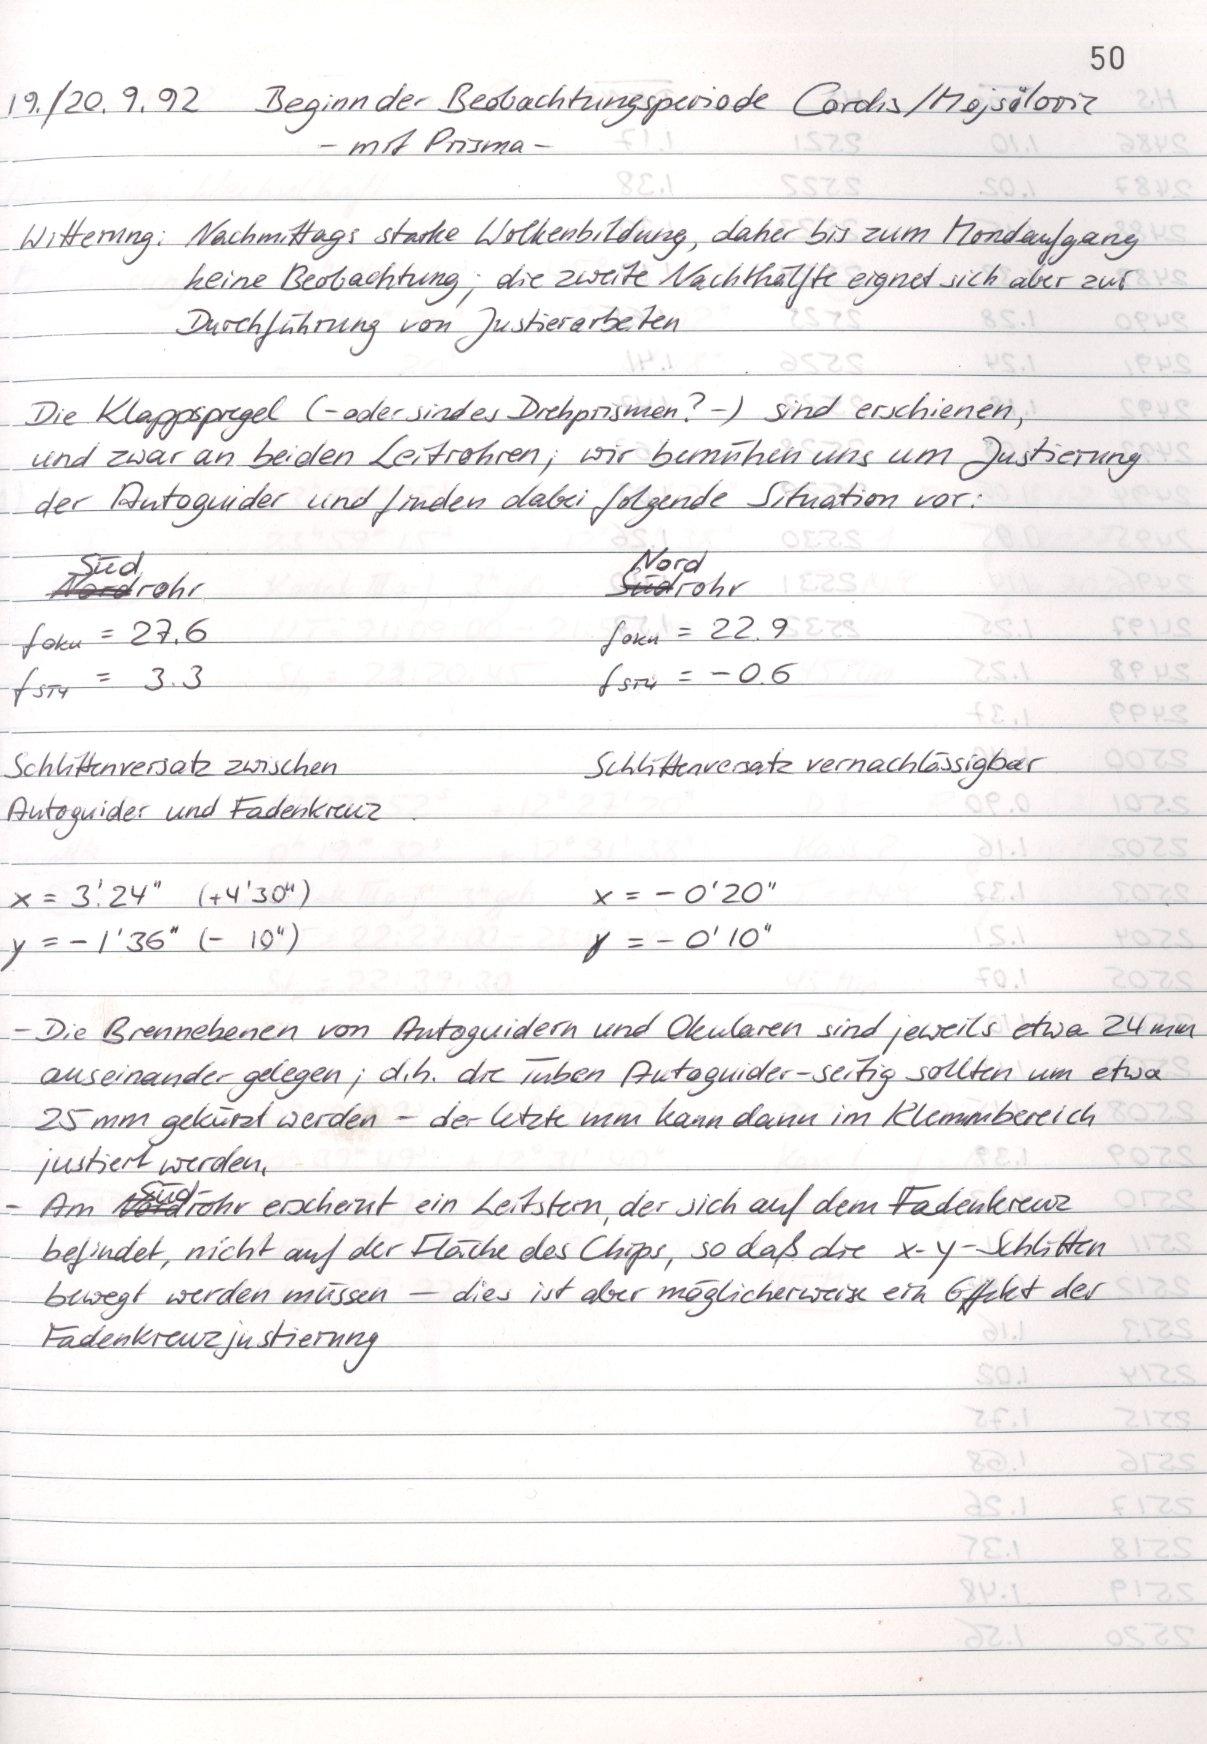 50
19./20.9.92 Beginn der Beobachtungsperiode Cordis/Mojsilovic
- mit Prisma -
Witterung: Nachmittags starke Wolkenbildung, daher bis zum Mondaufgang
keine Beobachtung; die zweite Nachthälfte eignet sich aber zur
Durchführung von Justierarbeiten
Die Klappspiegel (- oder sind es Drehprismen? -) sind erschienen,
und zwar an beiden Leitrohren; wir bemühen uns um Justierung
der Autoguider und finden dabei folgende Situation vor:
Süd Nord
Nordrohr Südrohr
fOku = 27.6 fOku = 22.9
fST4 = 3.3 fST4 = -0.6
Schlittenversatz zwischen Schlittenversatz vernachlässigbar
Autoguider und Fadenkreuz
x = 3'.24" (+4'30") x = -0'20"
y = -1'36" (- 10") y = -0'10"
- Die Brennebenen von Autoguidern und Okularen sind jeweils etwa 24 mm
auseinander gelegen; d.h. die Tuben Autoguider-seitig sollten um etwa
25 mm gekürzt werden - der letzte mm kann dann im Klemmbereich
justiert werden.
Süd-
- Am Nordrohr erscheint ein Leitstern, der sich auf dem Fadenkreuz
befindet, nicht auf der Fläche des Chips, so daß die x-y-Schlitten
bewegt werden müssen - dies ist aber möglicherweise ein Effekt der
Fadenkreuzjustierung